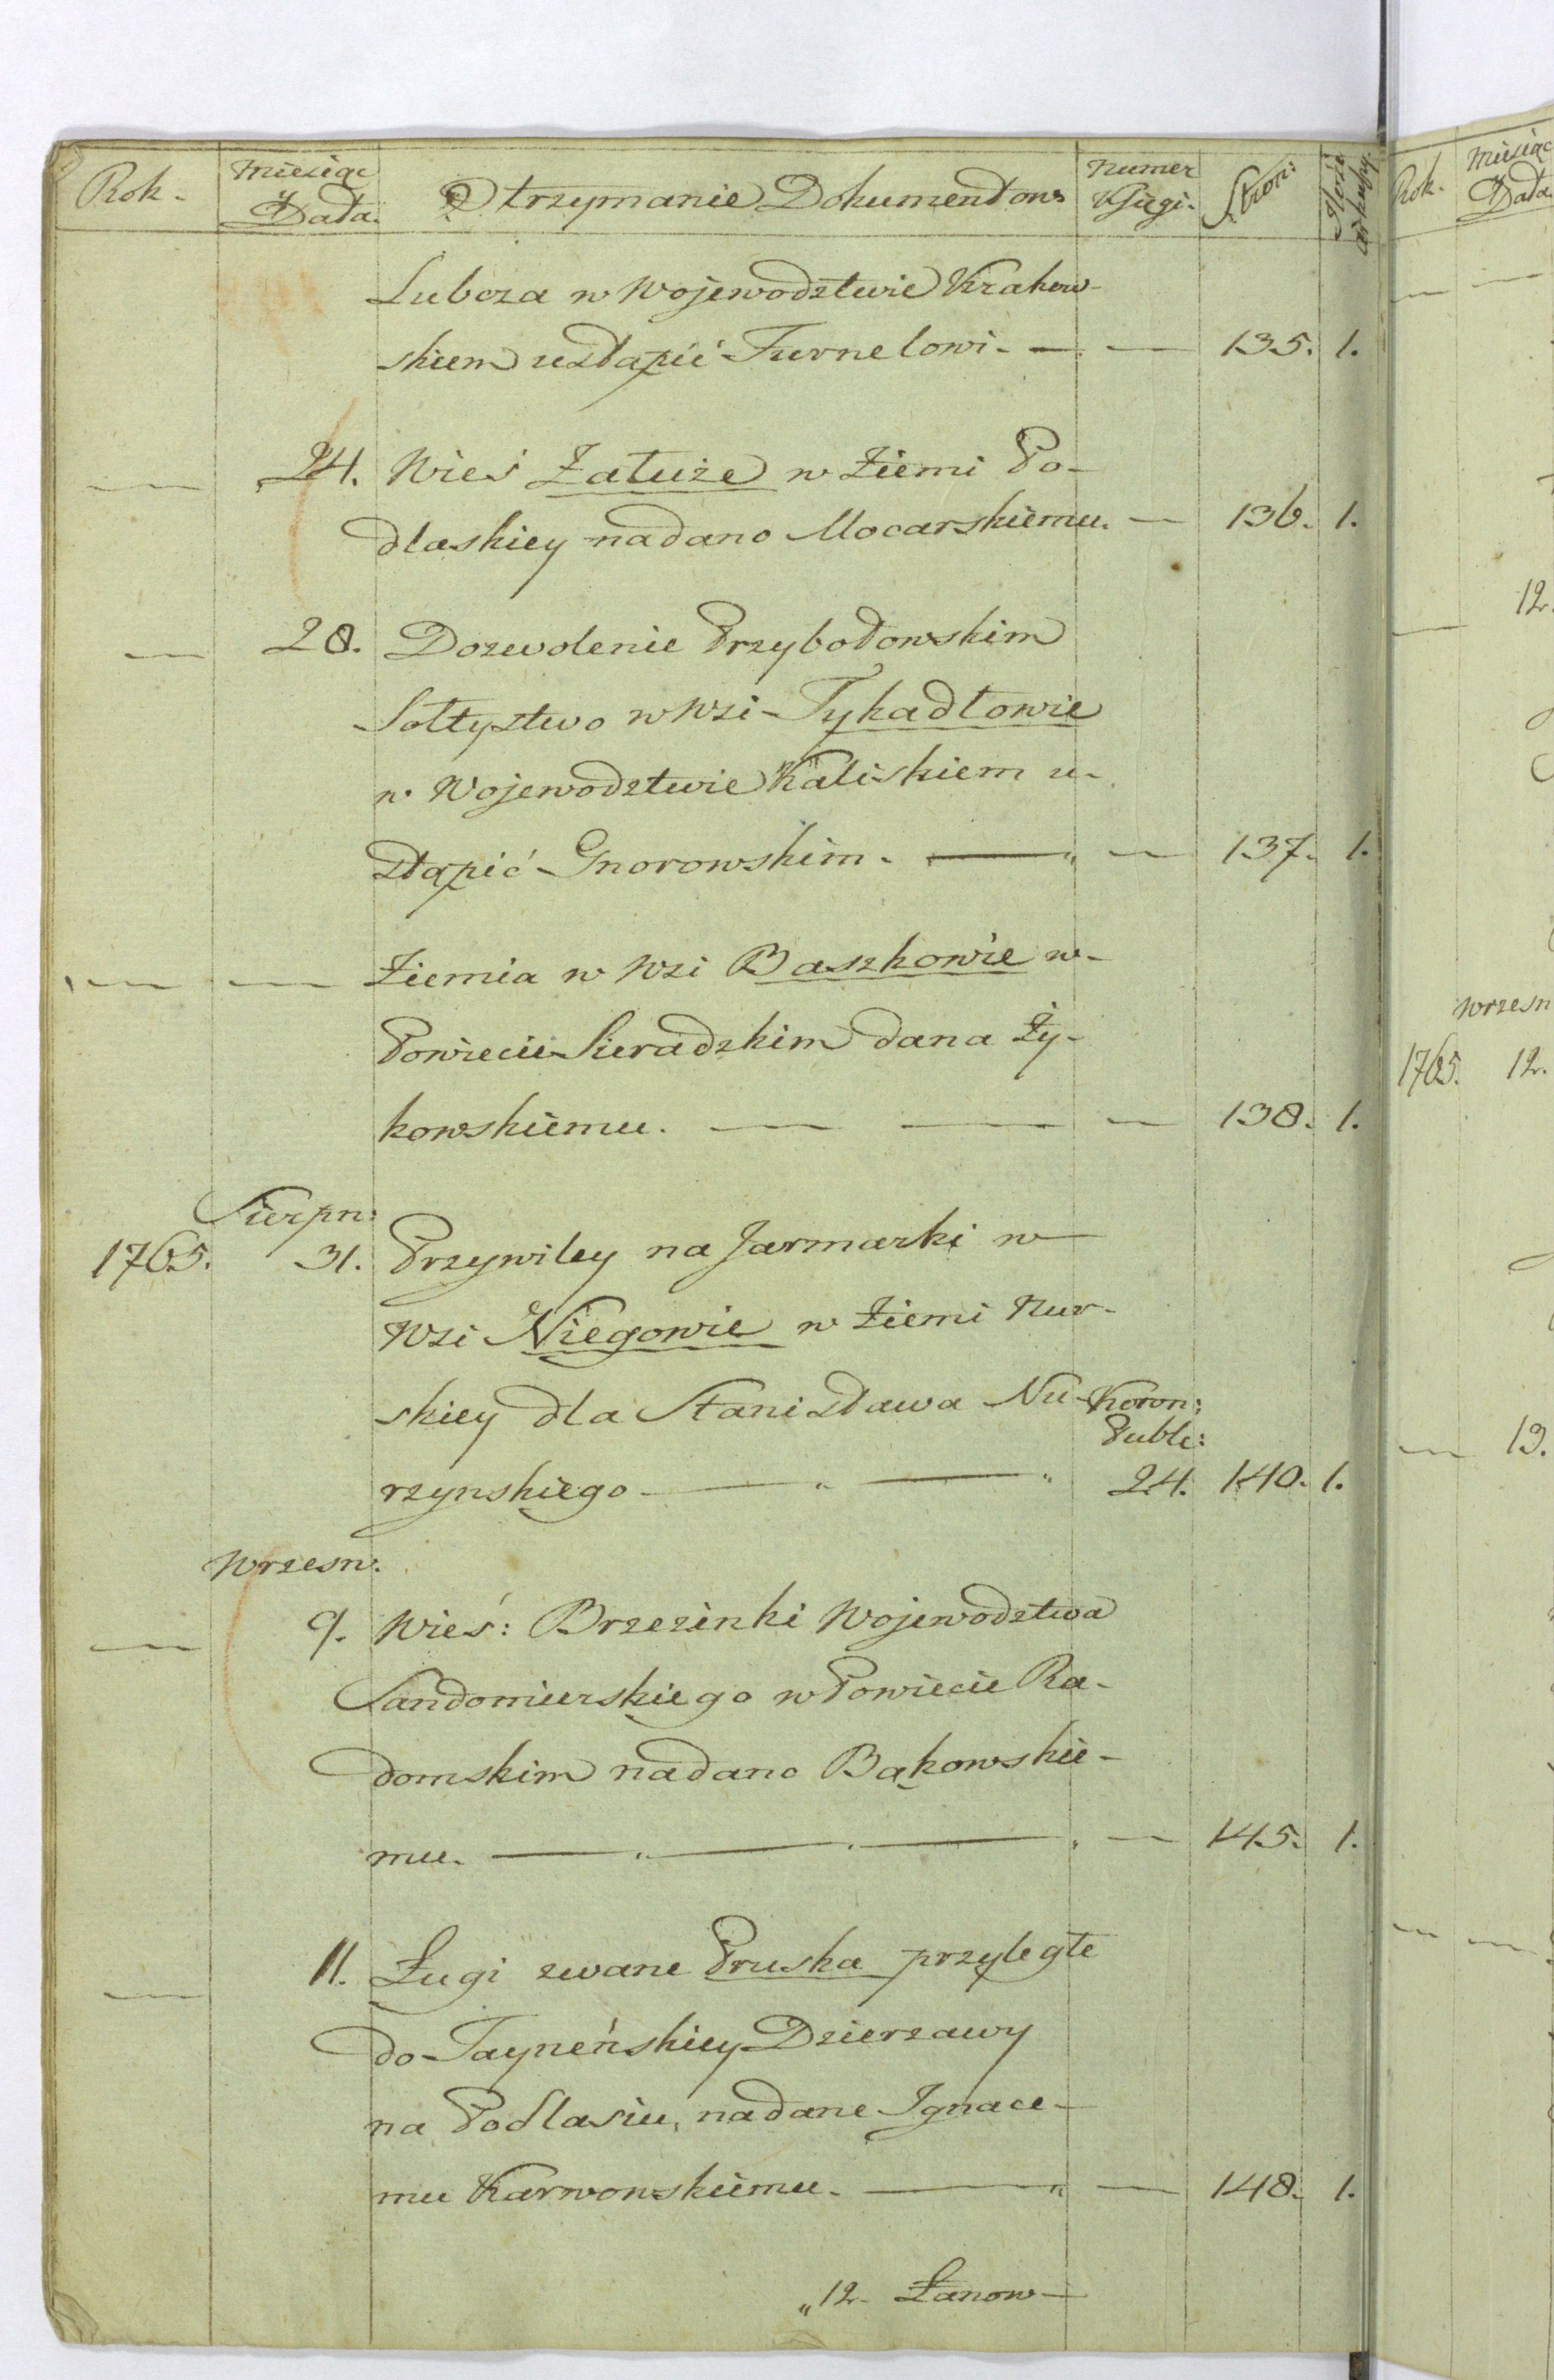 Rok. Miesiąc y Data. Otrzymanie Dokumentow Numer Księgi. Stron: Ilosć arkuszy.
Lubcza w Wojewodztwie Krakow-
skiem ustąpić Furnelowi. — — 135. 1.
— 24. Wieś Załuże w Ziemi Po-
dlaskiey nadano Mocarskiemu. — 136. 1.
— 28. Dozwolenie Przybodowskim
Sołtystwo w Wsi Tykadłowie
w Wojewodztwie Kaliskiem u-
stąpić Gnorowskim. — — 137. 1.
— — Ziemia w Wsi Baszkowie w
Powiecie Sieradzkim dana Ży-
kowskiemu. — — — 138. 1.
Sierpn:
1765. 31. Przywiley na Jarmarki w
Wsi Niegowie w Ziemi Nur-
skiey dla Stanisława Nu- Koron:
Publ:
rzynskiego — — 24. 140. 1.
Wrzesn:
— 9. Wieś: Brzezinki Wojewodztwa
Sandomierskiego w Powiecie Ra-
domskim nadano Bąkowskie-
mu. — — — 145. 1.
— 11. Ługi zwane Pruska przyległe
do Tayneńskiey Dzierzawy
na Podlasiu, nadane Ignace-
mu Karwowskiemu. — — 148. 1.
„12. Łanow
Rok. Miesiąc y Data.
12.
Wrzesn
1765. 12.
13.